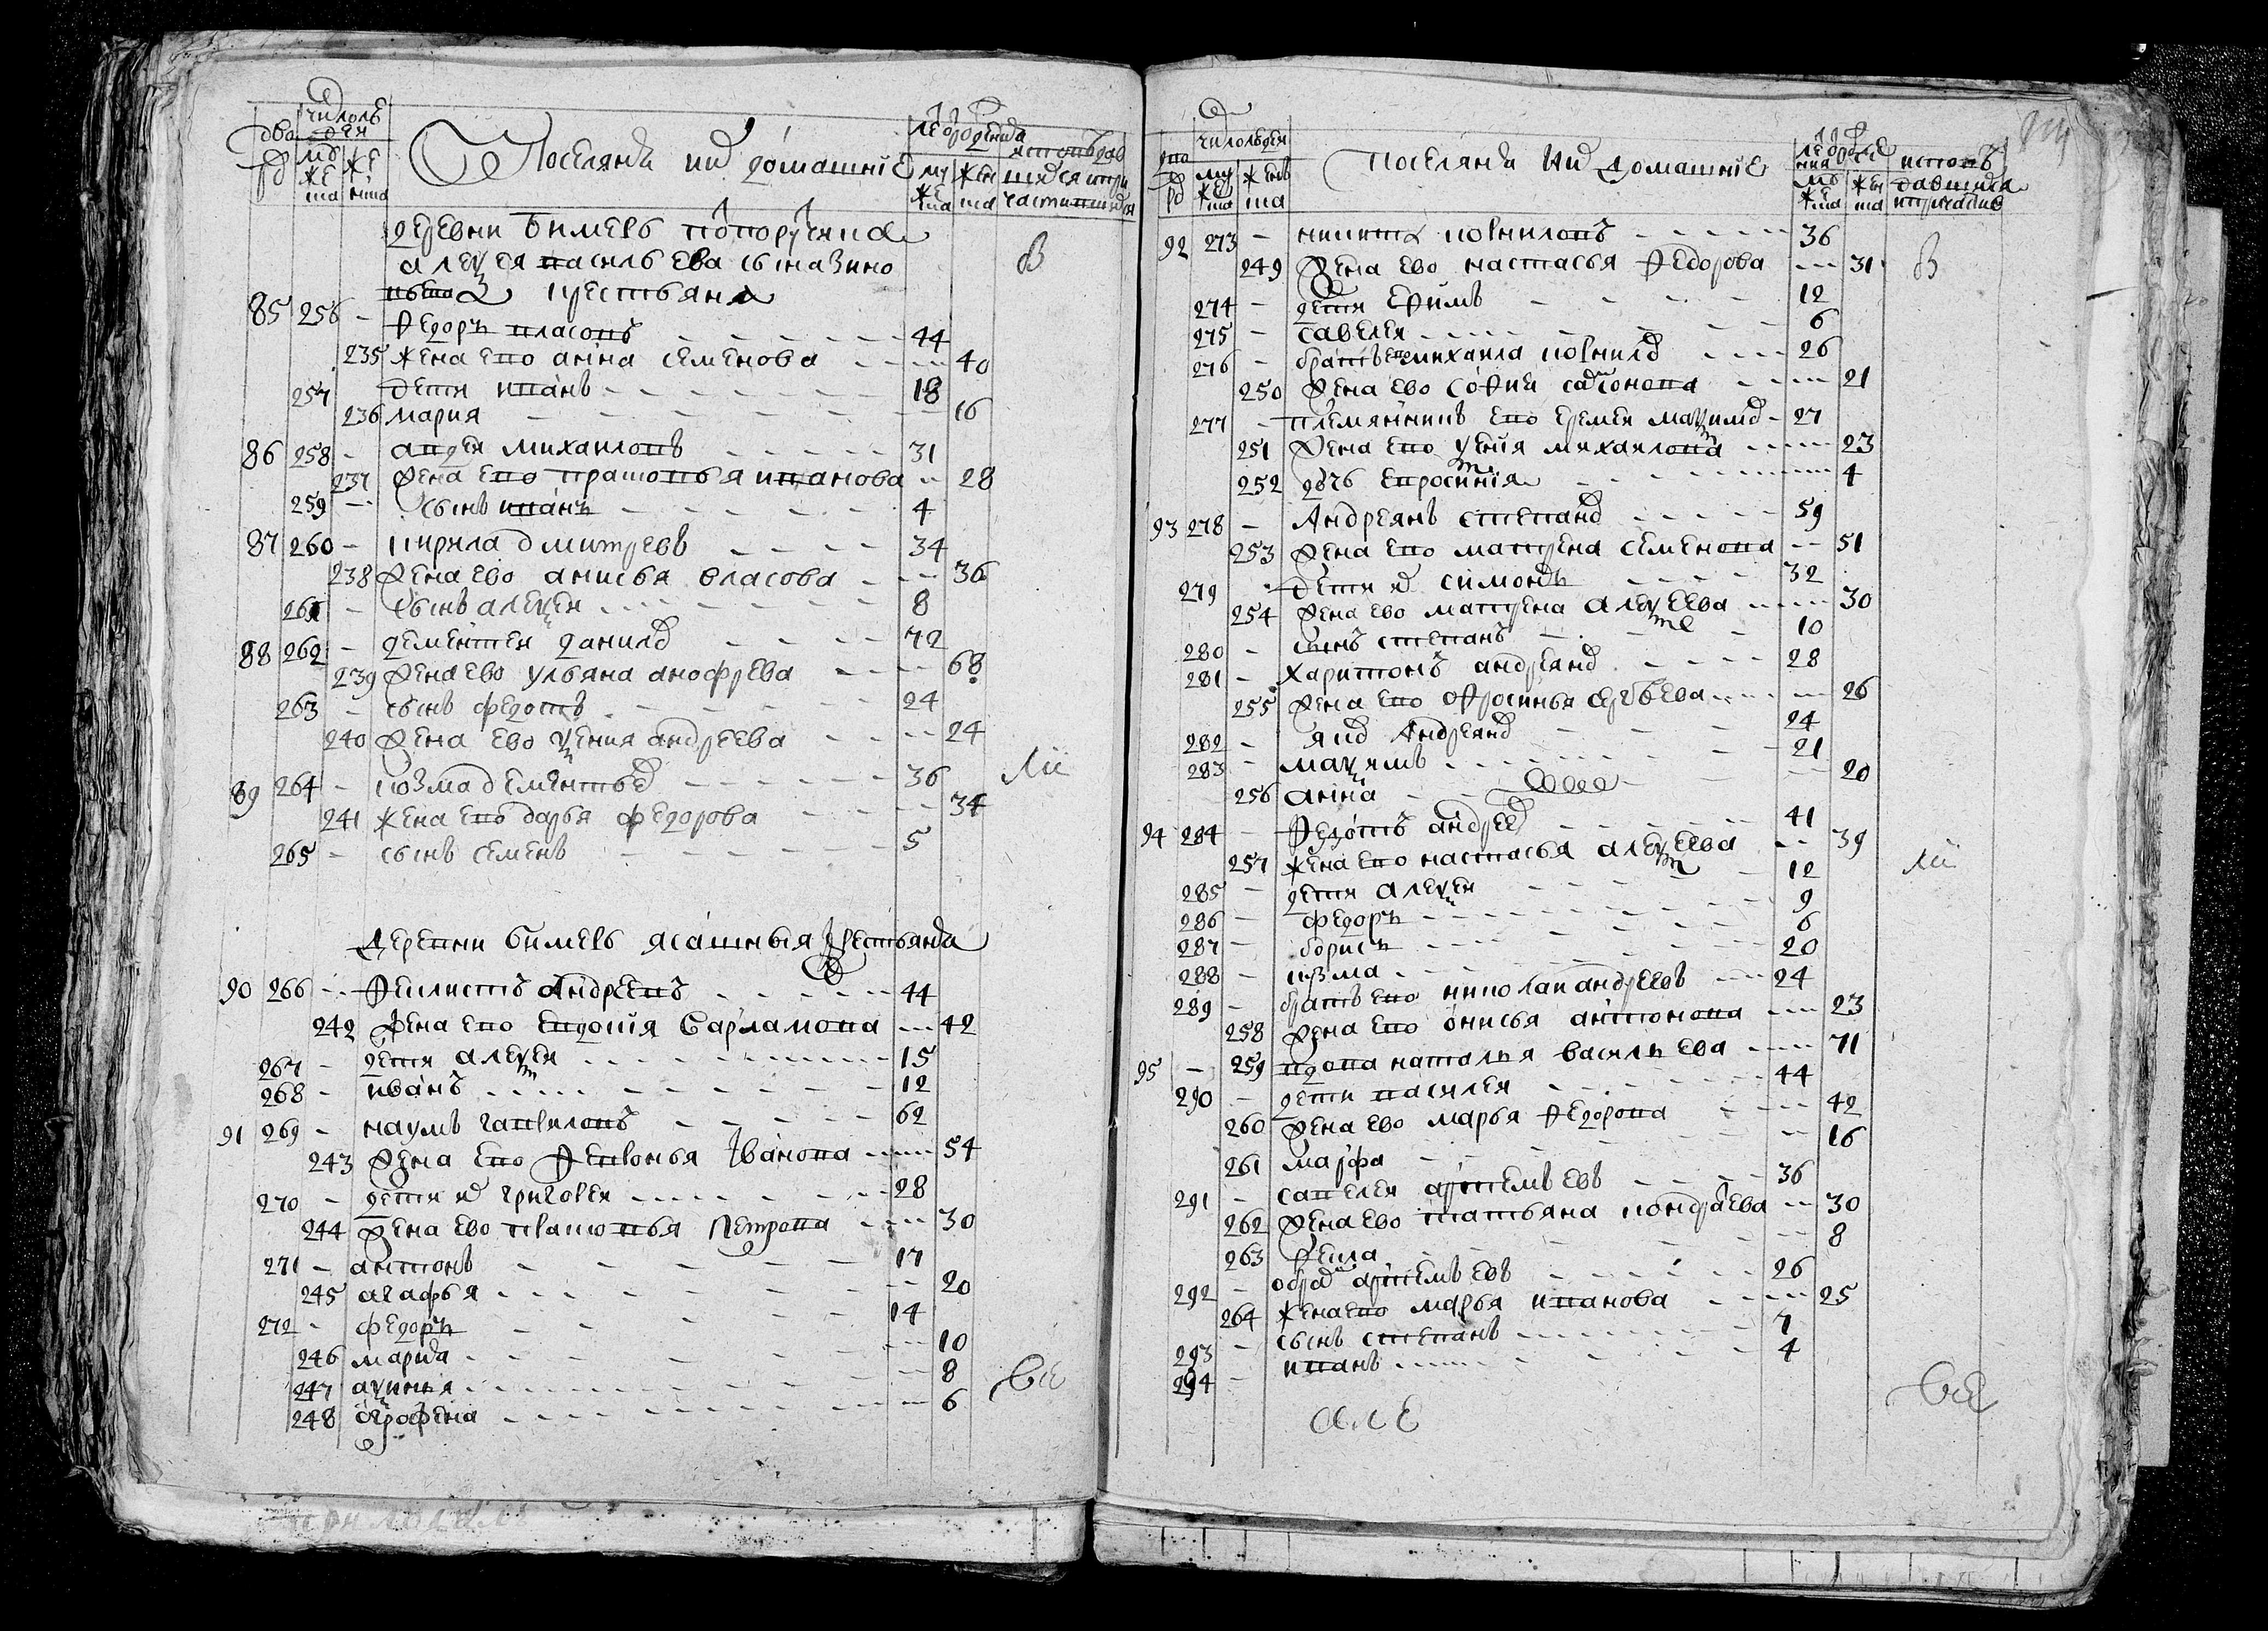 Поселяня их домашние
деревни Бимерь попоручика
алексея васильева сына Зино
85 256 - Федоръ власовъ 44
235 жена ево анна семенова 40
257 дети иванъ 18
236 мария 16
86 258 - андрей михаиловъ 31
237 жена ево прасковья иванова 28
259 - сынъ иванъ 4
87 260 - кирила дмитревъ 34
238 жена ево анисья власова 36
261 - сынъ алексей 8
88 262 - дементей данила 72
239 жена ево ульяна анофрева 68
263 - сынъ федотъ 24
240 жена ево ксения андреева 24
89 264 - козма дементьев 36
241 жена ево дарья федорова 34
265 - сынъ семенъ 5
деревни бимерь ясашныя крестьяня
90 266 - Феклистъ андреевъ 44
242 жена ево евдокия варламова 42
267 - дети алексей 15
268 - иванъ 12
91 269 - наумъ гавриловъ 62
243 жена ево Февронья иванова 54
270 - дети их григорей 28
244 жена ево прасковья петрова 30
271 - антонъ 17
245 агафья 20
272 - федоръ 14
246 мария 10
247 аксинья 8
248 аграфена 6
Все
Поселяня их домашние
92 273 - никита корнилов 36
249 жена ево настасья Федорова 31
274 - дети ефимъ 12
275 - савелей 6
276 - братъ ево михаила корнила 26
250 жена ево софия 21
277 - племянникъ ево еремей максима 27
251 жена ево ксения михаилова 23
252 дочь 4
93 278 - Андреянъ степана 59
253 жена ево матрена семенова 51
279 - дети их симонъ 32
254 жена ево матрена алексеева 30
280 - сынъ степанъ 10
281 - харитонъ андреяна 28
255 жена ево офросинья 26
282 - яков Андреяна 24
283 - максимъ 21
256 анна 20
94 284 - Федотъ андреев 41
257 жена ево настасья алексеева 39
285 - дети алексей 12
286 - федоръ 9
287 - борисъ 6
288 - козма 20
289 - братъ ево николаи андреевъ 24
258 жена ево онисья антонова 23
95 - 259 вдова наталья васильева 71
290 - дети василей 44
260 жена ево марья Федорова 42
261 марфа 16
291 - савелей артемьевъ 36
262 жена ево татьяна кондраева 30
263 фекла 8
292 - артемьевъ 26
264 жена ево марья иванова 25
293 - сынъ степанъ 7
294 - иванъ 4
Все